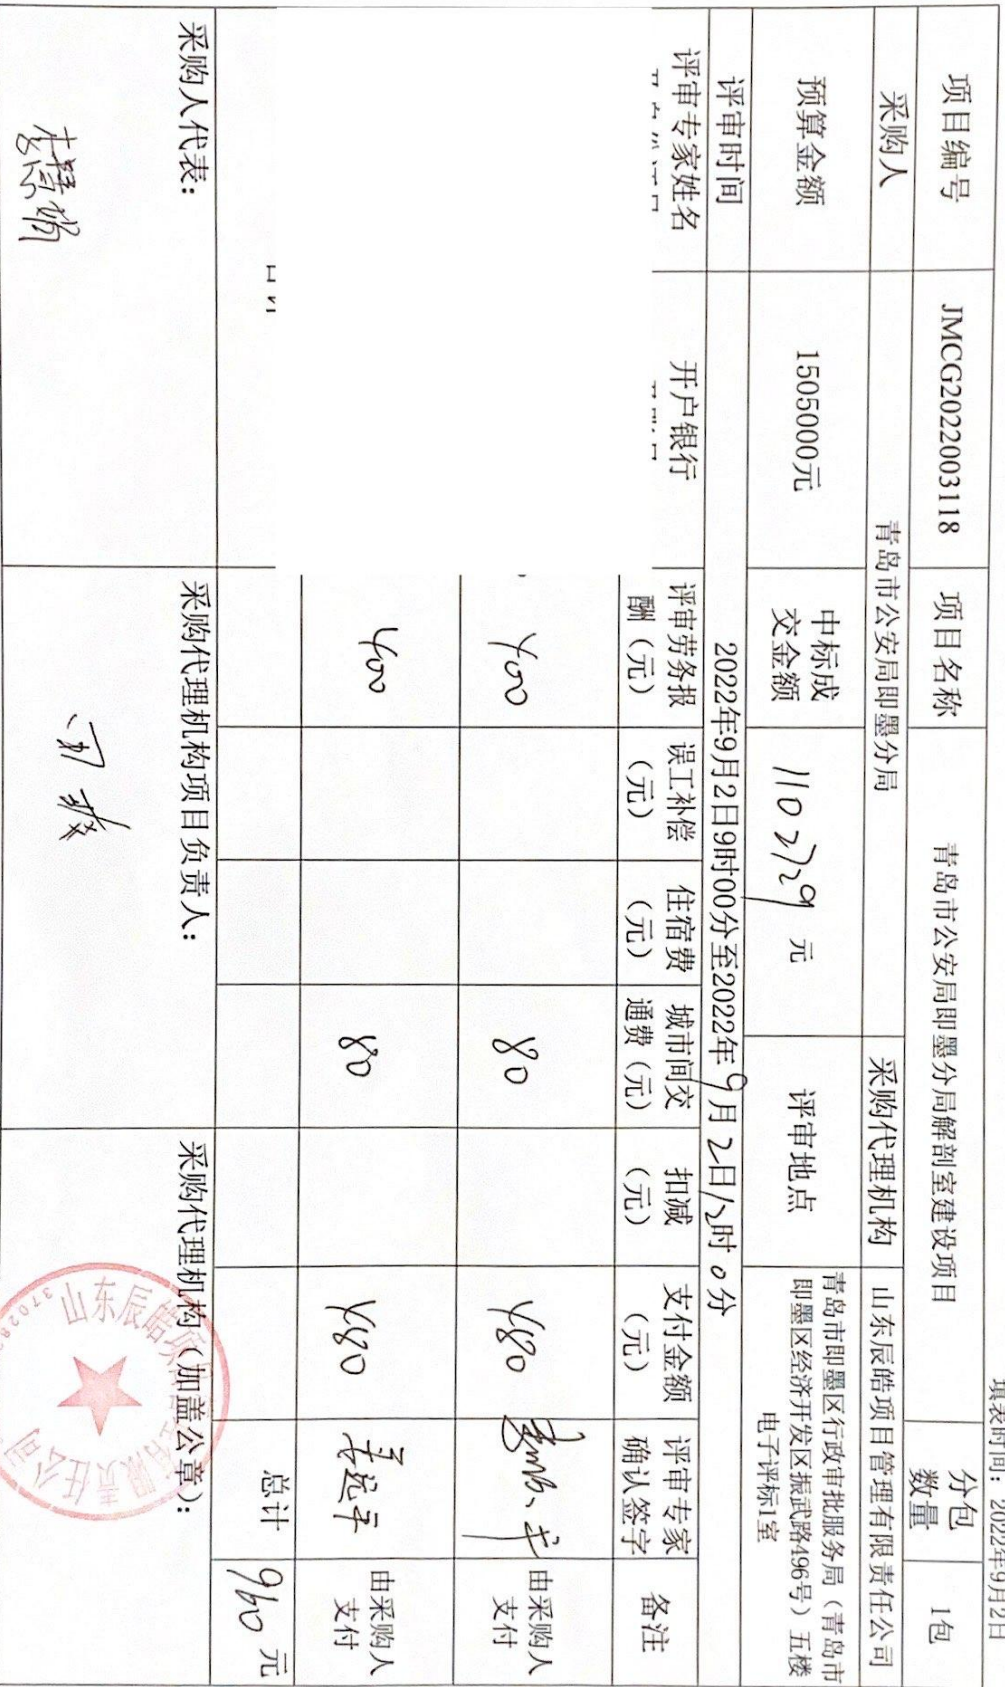 填表时间：2022年9月2日
项目编号 JMCG2022003118 项目名称 青岛市公安局即墨分局解剖室建设项目 分包数量 1包
采购人 青岛市公安局即墨分局 采购代理机构 山东辰皓项目管理有限责任公司
预算金额 1505000元 中标成交金额 1102729 元 评审地点 青岛市即墨区行政审批服务局（青岛市即墨区经济开发区振武路496号）五楼电子评标1室
评审时间 2022年9月2日9时00分至2022年9月2日12时0分
评审专家姓名 开户银行 评审劳务报酬（元） 误工补偿（元） 住宿费（元） 城市间交通费（元） 扣减（元） 支付金额（元） 评审专家确认签字 备注
400 80 480 由采购人支付
400 80 480 由采购人支付
总计 960 元
采购人代表： 采购代理机构项目负责人： 采购代理机构（加盖公章）：
山东辰皓项 有限责任公司